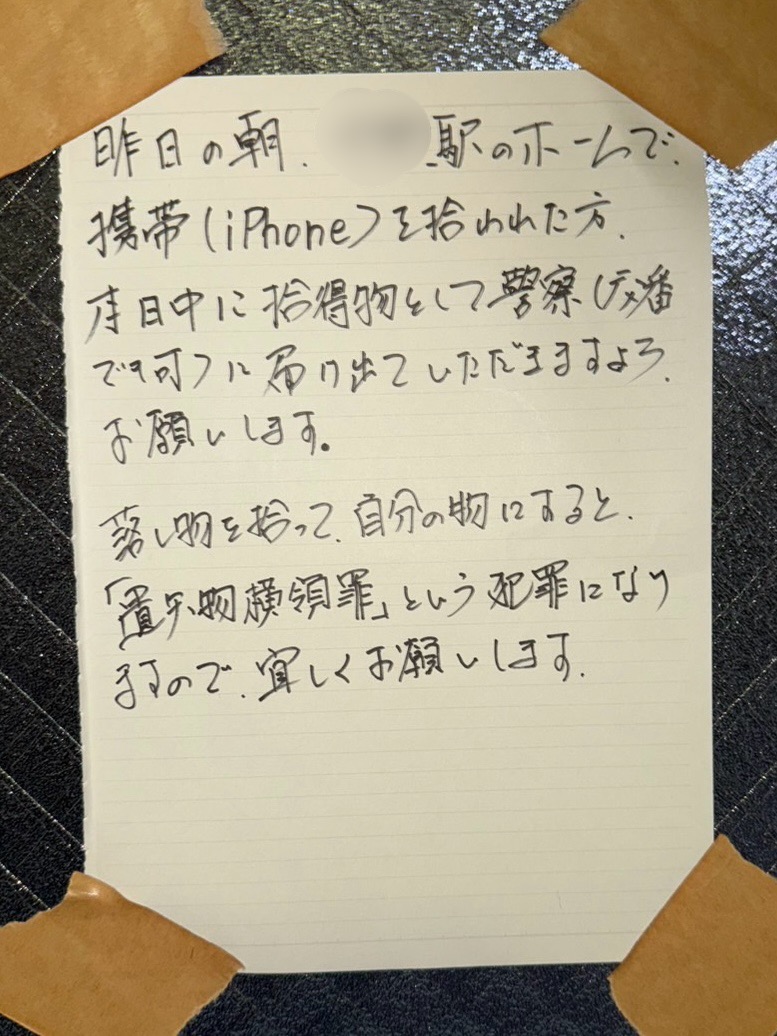 昨日の朝、駅のホームで、
携帯(iPhone)を拾われた方、
本日中に拾得物として警察(交番
でも可)に届け出ていただきますよう、
お願いします。
落し物を拾って、自分の物にすると、
「遺失物横領罪」という犯罪になり
ますので、宜しくお願いします。